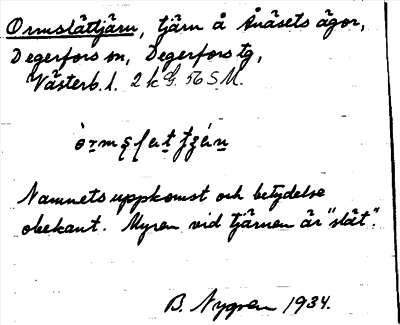 Ormslåttjärn, tjärn å Ånäsets ägor,
Degerfors sn, Degerfors tg,
Västerb. l. 2 k G. 56 S M.
Namnets uppkomst och betydelse
obekant. Myren vid tjärnen är "slåt".
B. Nygren 1934.